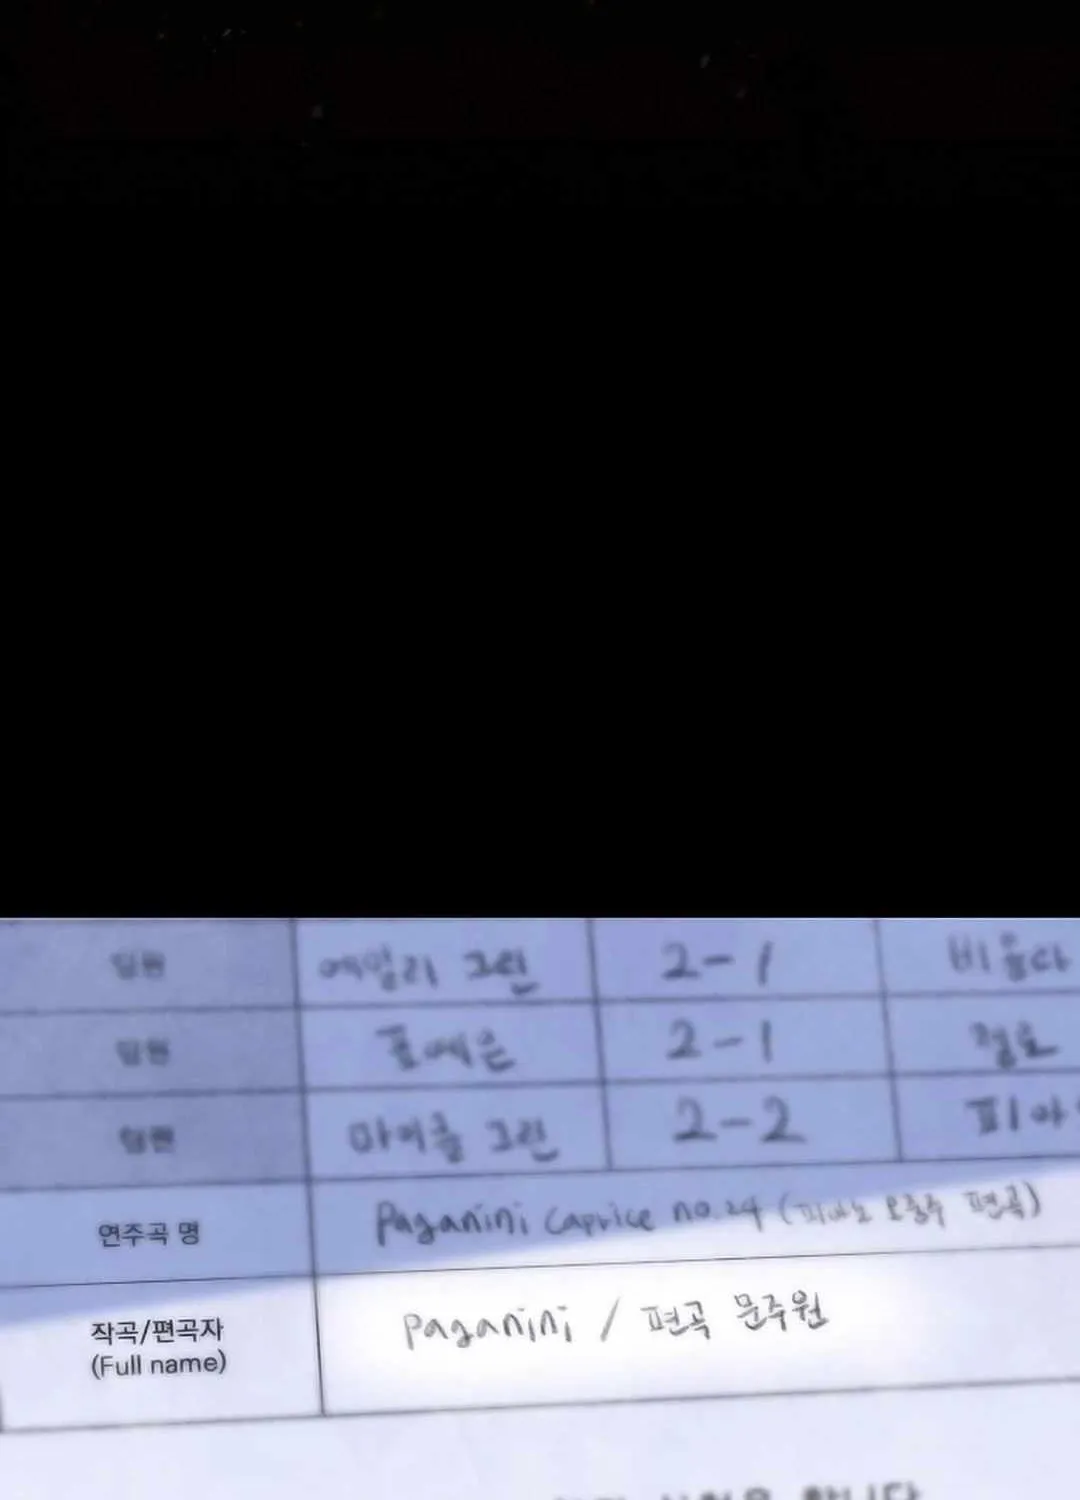 팀원 에밀리 그린 2-1 비올라
팀원 표예은 2-1 첼로
팀원 마이클 그린 2-2 피아
연주곡 명 Paganini Caprice no.24 (피아노 오중주 편곡)
작곡/편곡자 Paganini / 편곡 문주원
(Full name)
합니다